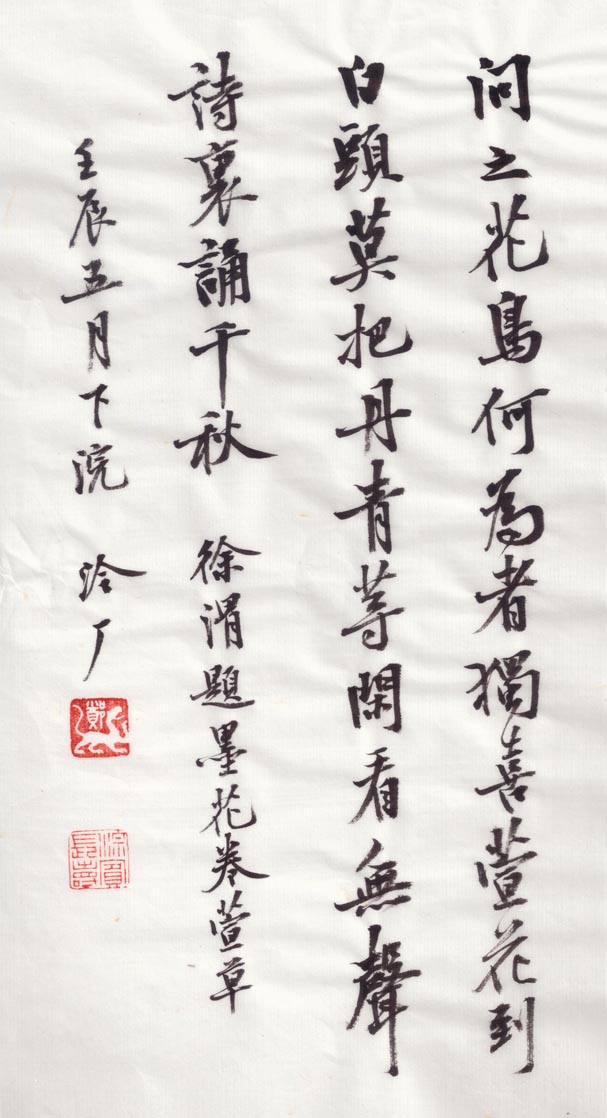 问之花鳥何為者獨喜萱花到
白頭莫把丹青等閑看無聲
詩裏誦千秋 徐渭題墨花卷萱草
壬辰五月下浣 泠厂